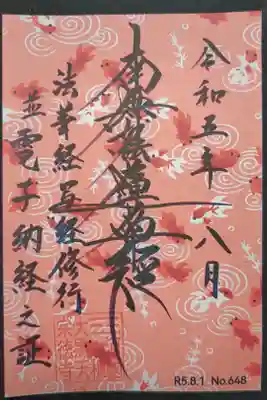 令和五年 八月
南無妙法蓮華経
法華経写経修行
並電子納経之証
R5.8.1 No.648